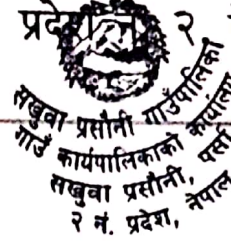 प्रदेश २
सखुवा प्रसौनी गाउँपालिका
गाउँ कार्यपालिकाको कार्यालय
सखुवा प्रसौनी, पर्सा
२ नं. प्रदेश, नेपाल